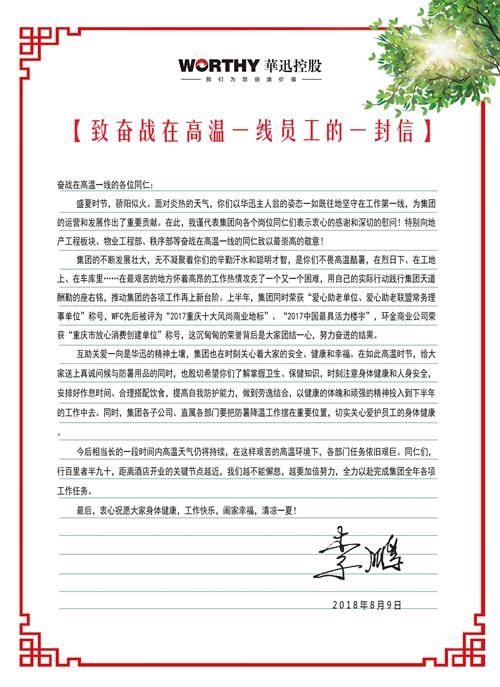 WORTHY 華迅控股
我们为您创造价值
【致奋战在高温一线员工的一封信】
奋战在高温一线的各位同仁：
盛夏时节，骄阳似火。面对炎热的天气，你们以华迅主人翁的姿态一如既往地坚守在工作第一线，为集团
的运营和发展作出了重要贡献。在此，我谨代表集团向各个岗位同仁们表示衷心的感谢和深切的慰问！特别向地
产工程板块、物业工程部、秩序部等奋战在高温一线的同仁致以最崇高的敬意！
集团的不断发展壮大，无不凝聚着你们的辛勤汗水和聪明才智，是你们不畏高温酷暑，在烈日下、在工地
上、在车库里……在最艰苦的地方怀着高昂的工作热情攻克了一个又一个困难，用自己的实际行动践行集团天道
酬勤的座右铭，推动集团的各项工作再上新台阶。上半年，集团同时荣获“爱心助老单位、爱心助老联盟常务理
事单位”称号，WFC先后被评为“2017重庆十大风尚商业地标”、“2017中国最具活力楼宇”，环金商业公司荣
获“重庆市放心消费创建单位”称号，这沉甸甸的荣誉背后是大家团结一心，努力奋进的结果。
互助关爱一向是华迅的精神土壤，集团也在时刻关心着大家的安全、健康和幸福。在如此高温时节，给大
家送上真诚问候与防暑用品的同时，也殷切希望你们了解掌握卫生、保健知识，时刻注意身体健康和人身安全，
安排好作息时间、合理搭配饮食，提高自我防护能力，做到劳逸结合，以健康的体魄和顽强的精神投入到下半年
的工作中去。同时，集团各子公司、直属各部门要把防暑降温工作摆在重要位置，切实关心爱护员工的身体健康
。
今后相当长的一段时间内高温天气仍将持续，在这样艰苦的高温环境下，各部门任务依旧艰巨。同仁们，
行百里者半九十，距离酒店开业的关键节点越近，我们越不能懈怠，越要加倍努力，全力以赴完成集团全年各项
工作任务。
最后，衷心祝愿大家身体健康，工作快乐，阖家幸福，清凉一夏！
2018年8月9日